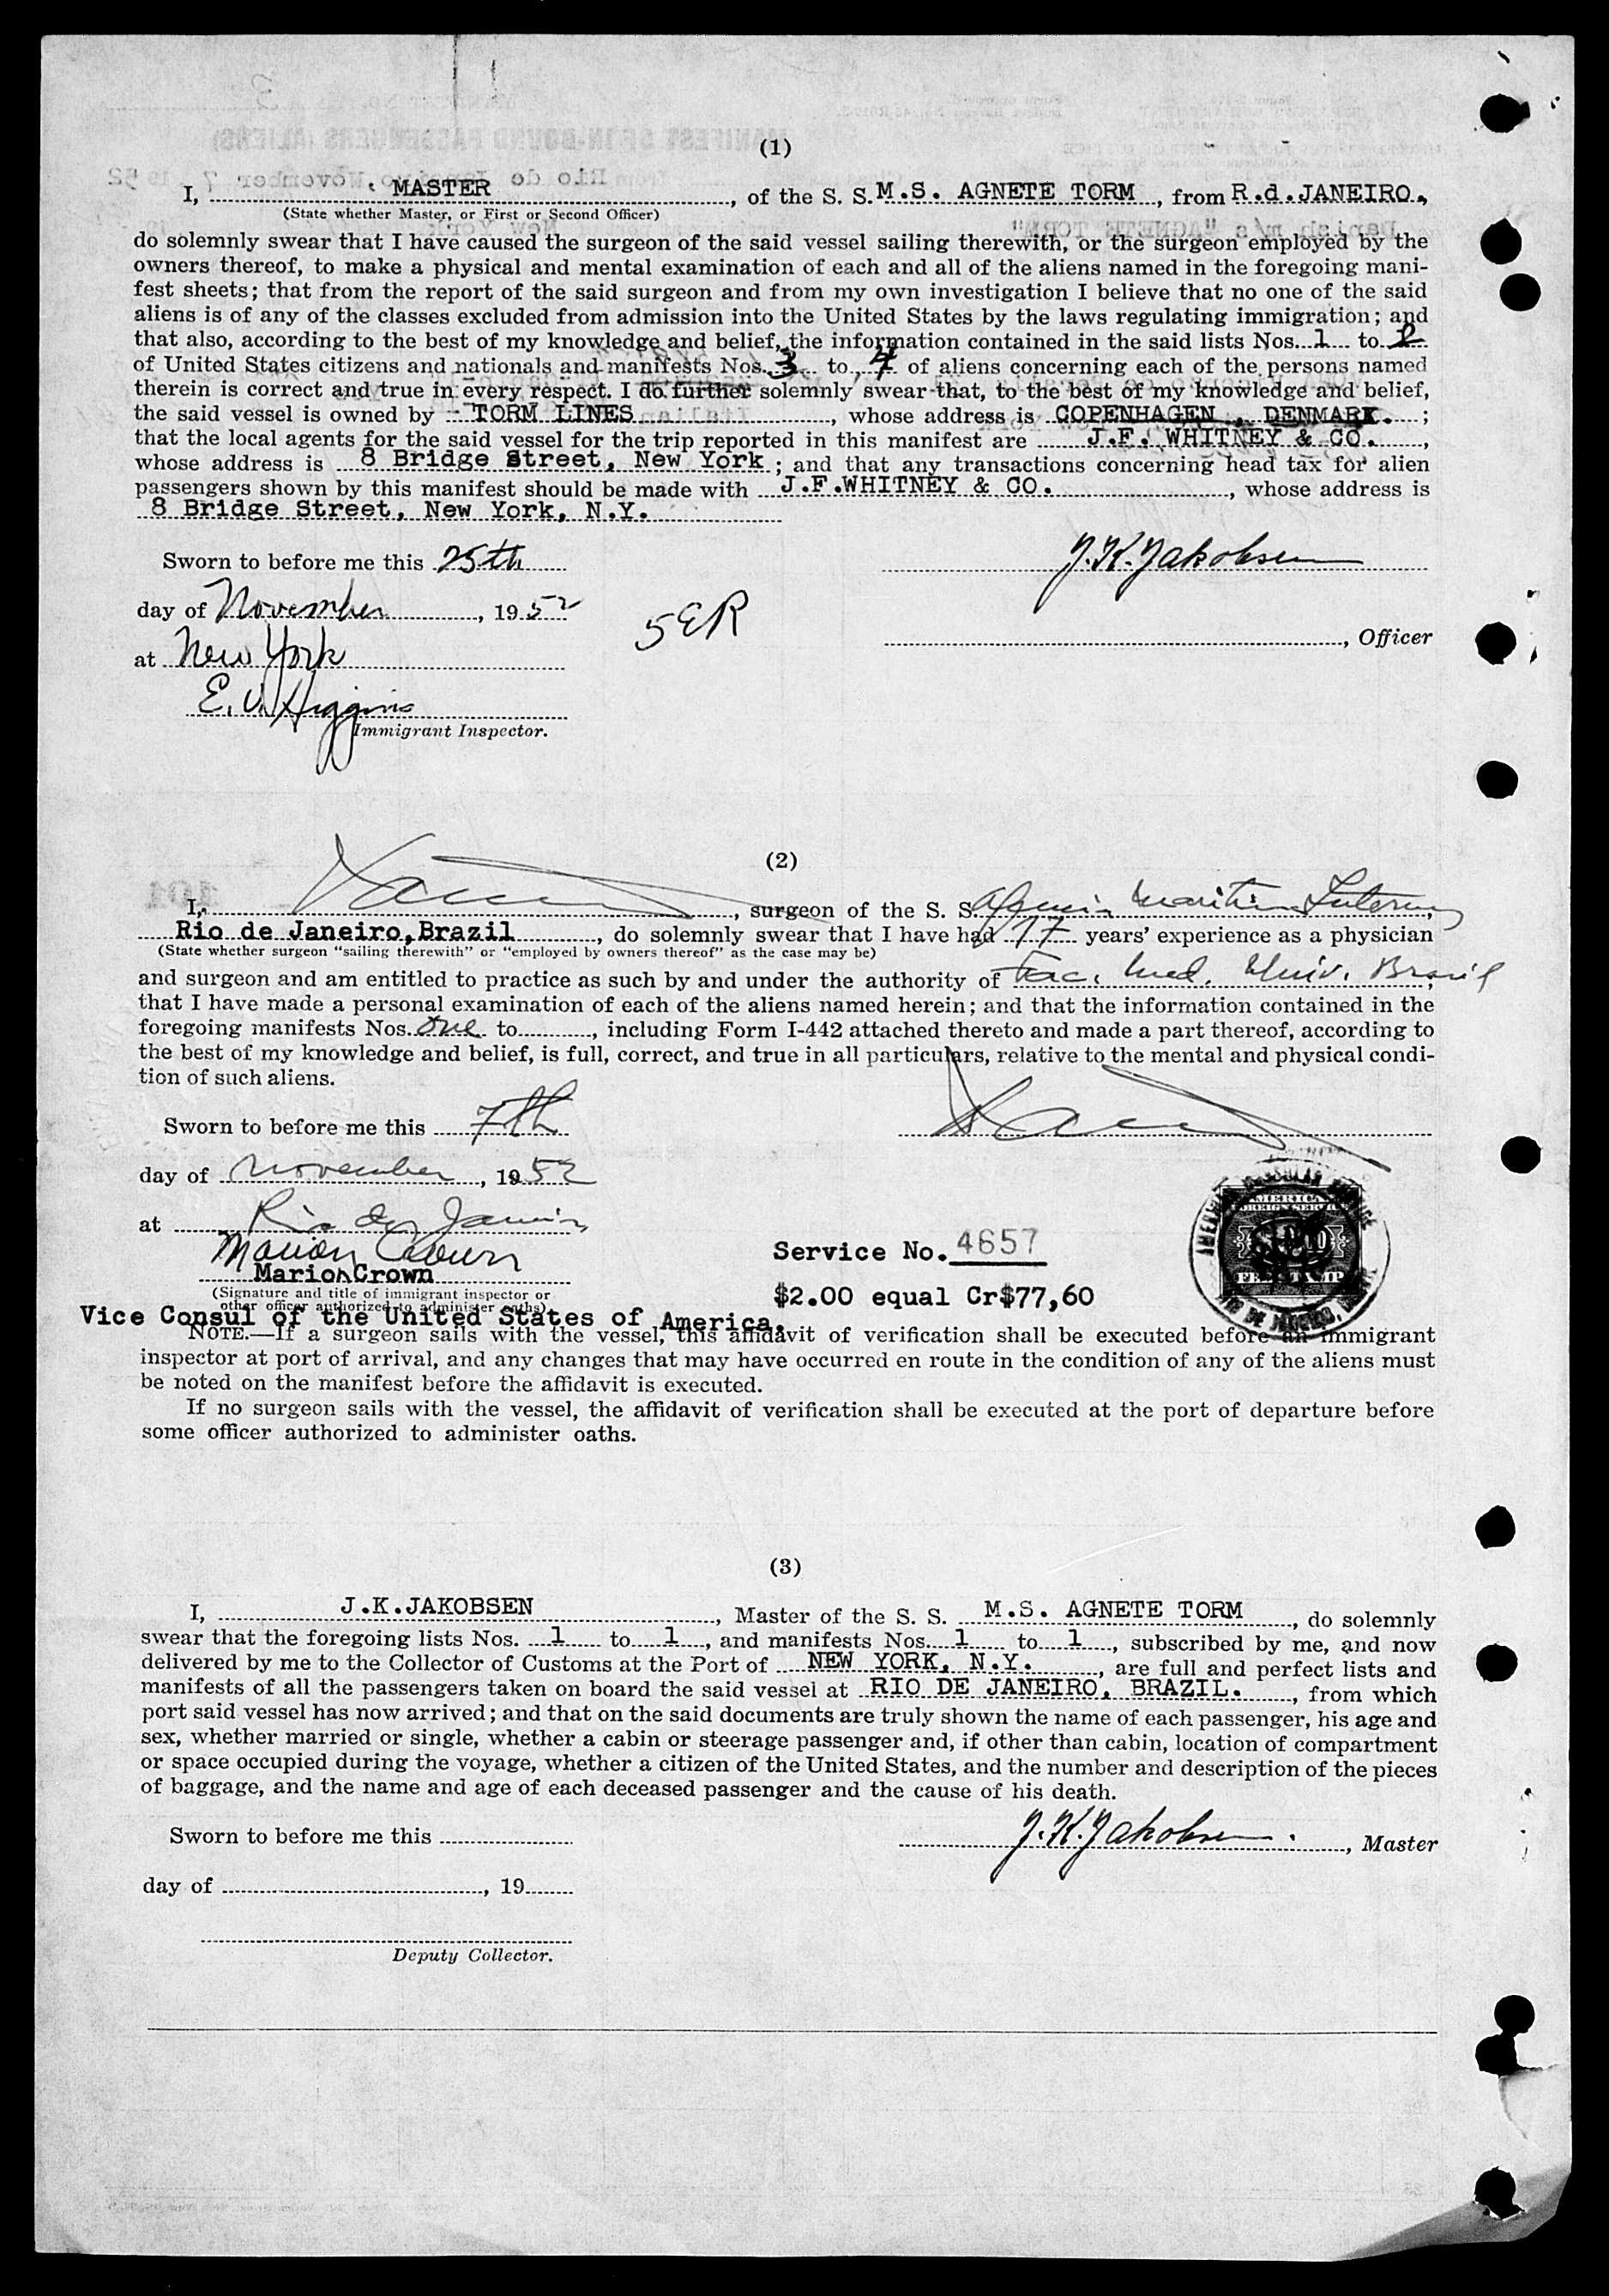 (1)
I, MASTER, of the S. S. M.S. AGNETE TORM, from R.d.JANEIRO,
(State whether Master, or First or Second Officer)
do solemnly swear that I have caused the surgeon of the said vessel sailing therewith, or the surgeon employed by the
owners thereof, to make a physical and mental examination of each and all of the aliens named in the foregoing mani-
fest sheets; that from the report of the said surgeon and from my own investigation I believe that no one of the said
aliens is of any of the classes excluded from admission into the United States by the laws regulating immigration; and
that also, according to the best of my knowledge and belief, the information contained in the said lists Nos. 1 to 2
of United States citizens and nationals and manifests Nos. 3 to 4 of aliens concerning each of the persons named
therein is correct and true in every respect. I do further solemnly swear that, to the best of my knowledge and belief,
the said vessel is owned by TORM LINES, whose address is COPENHAGEN, DENMARK.;
that the local agents for the said vessel for the trip reported in this manifest are J.F. WHITNEY & CO.,
whose address is 8 Bridge Street, New York; and that any transactions concerning head tax for alien
passengers shown by this manifest should be made with J.F.WHITNEY & CO., whose address is
8 Bridge Street, New York, N.Y.
Sworn to before me this 25th
J.K.Jakobsen
day of November, 1952
5ER
, Officer
at New York
E.V. Higgins
Immigrant Inspector.
(2)
I, , surgeon of the S. S.
Rio de Janeiro, Brazil, do solemnly swear that I have had 17 years' experience as a physician
(State whether surgeon "sailing therewith" or "employed by owners thereof" as the case may be)
and surgeon and am entitled to practice as such by and under the authority of Fac. Med. Univ. Brasil,
that I have made a personal examination of each of the aliens named herein; and that the information contained in the
foregoing manifests Nos. One to , including Form I-442 attached thereto and made a part thereof, according to
the best of my knowledge and belief, is full, correct, and true in all particulars, relative to the mental and physical condi-
tion of such aliens.
Sworn to before me this 7th
day of November, 1952
at Rio de Janeiro
Marion Crown
Marion Crown
(Signature and title of immigrant inspector or
other officer authorized to administer oaths)
Service No. 4657
$2.00 equal Cr$77,60
AMERICAN
FOREIGN SERVICE
FEE STAMP
Vice Consul of the United States of America.
NOTE.—If a surgeon sails with the vessel, this affidavit of verification shall be executed before an immigrant
inspector at port of arrival, and any changes that may have occurred en route in the condition of any of the aliens must
be noted on the manifest before the affidavit is executed.
If no surgeon sails with the vessel, the affidavit of verification shall be executed at the port of departure before
some officer authorized to administer oaths.
(3)
I, J.K.JAKOBSEN, Master of the S. S. M.S. AGNETE TORM, do solemnly
swear that the foregoing lists Nos. 1 to 1, and manifests Nos. 1 to 1, subscribed by me, and now
delivered by me to the Collector of Customs at the Port of NEW YORK, N.Y., are full and perfect lists and
manifests of all the passengers taken on board the said vessel at RIO DE JANEIRO, BRAZIL., from which
port said vessel has now arrived; and that on the said documents are truly shown the name of each passenger, his age and
sex, whether married or single, whether a cabin or steerage passenger and, if other than cabin, location of compartment
or space occupied during the voyage, whether a citizen of the United States, and the number and description of the pieces
of baggage, and the name and age of each deceased passenger and the cause of his death.
Sworn to before me this
J.K.Jakobsen, Master
day of , 19
Deputy Collector.